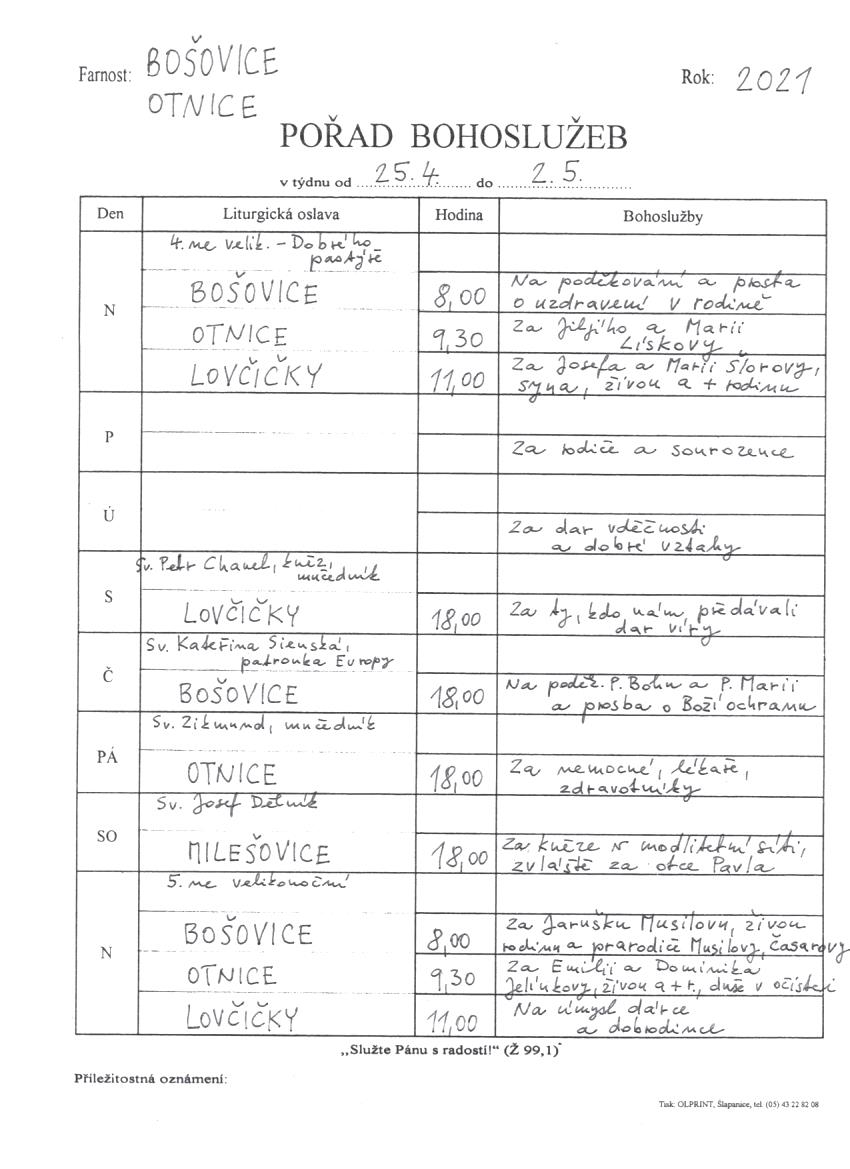 Farnost: BOŠOVICE
OTNICE
Rok: 2021
POŘAD BOHOSLUŽEB
v týdnu od 25.4. do 2.5.
Den Liturgická oslava Hodina Bohoslužby
N
4. ne velik. – Dobrého
pastýře
BOŠOVICE 8,00 Na poděkování a prosba
o uzdravení v rodině
OTNICE 9,30 Za Jiljího a Marii
Lískovy
LOVČIČKY 11,00 Za Josefa a Marii Šlorovy,
syna, živou a + rodinu
P
Za rodiče a sourozence
Ú
Za dar vděčnosti
a dobré vztahy
S
Sv. Petr Chanel, kněz,
mučedník
LOVČIČKY 18,00 Za ty, kdo nám předávali
dar víry
Č
Sv. Kateřina Sienská,
patronka Evropy
BOŠOVICE 18,00 Na poděk. P. Bohu a P. Marii
a prosba o Boží ochranu
PÁ
Sv. Zikmund, mučedník
OTNICE 18,00 Za nemocné, lékaře,
zdravotníky
SO
Sv. Josef Dělník
MILEŠOVICE 18,00 Za kněze v modlitební síti,
zvláště za otce Pavla
N
5. ne velikonoční
BOŠOVICE 8,00 Za Jarušku Musilovu, živou
rodinu a prarodiče Musilovy, Časarovy
OTNICE 9,30 Za Emilii a Dominika
Jelínkovy, živou a + r., duše v očistci
LOVČIČKY 11,00 Na úmysl dárce
a dobrodince
„Služte Pánu s radostí!“ (Ž 99,1)
Příležitostná oznámení:
Tisk: OLPRINT, Šlapanice, tel. (05) 43 22 82 08